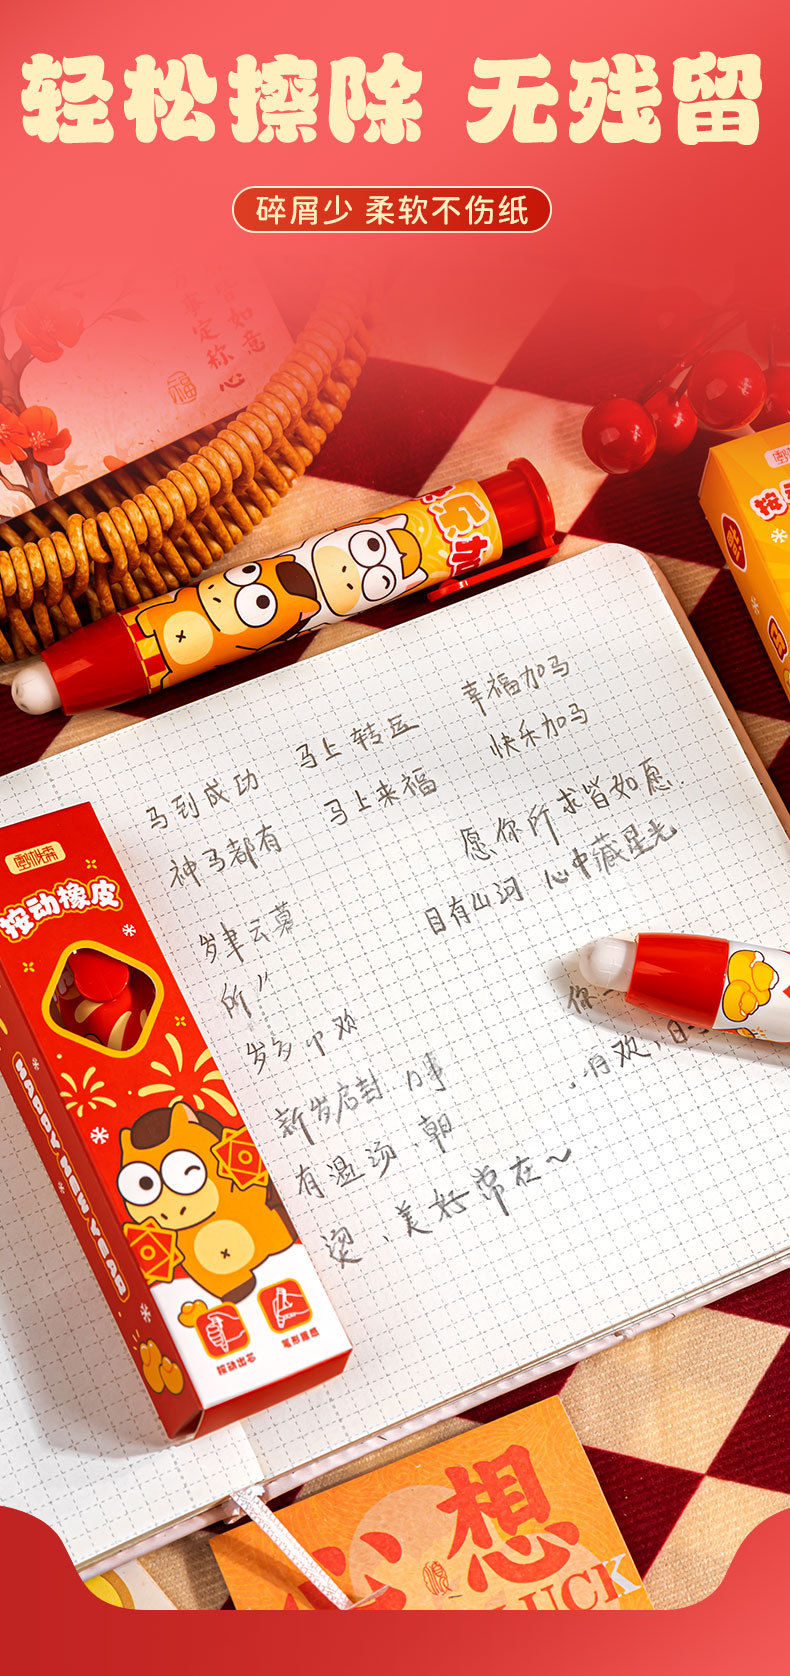 轻松擦除 无残留
碎屑少 柔软不伤纸
皆如意
事定称心
福
乐加
幸福加马
马到成功 马上转运
快乐加马
神马都有 马上来福
愿你所求皆如愿
目有山河 心中藏星光
按动橡皮
岁聿云暮
所
欢
新岁启封
有温
朝
美好常在~
HAPPY NEW YEAR
按动出芯
笔形握感
想
LUCK